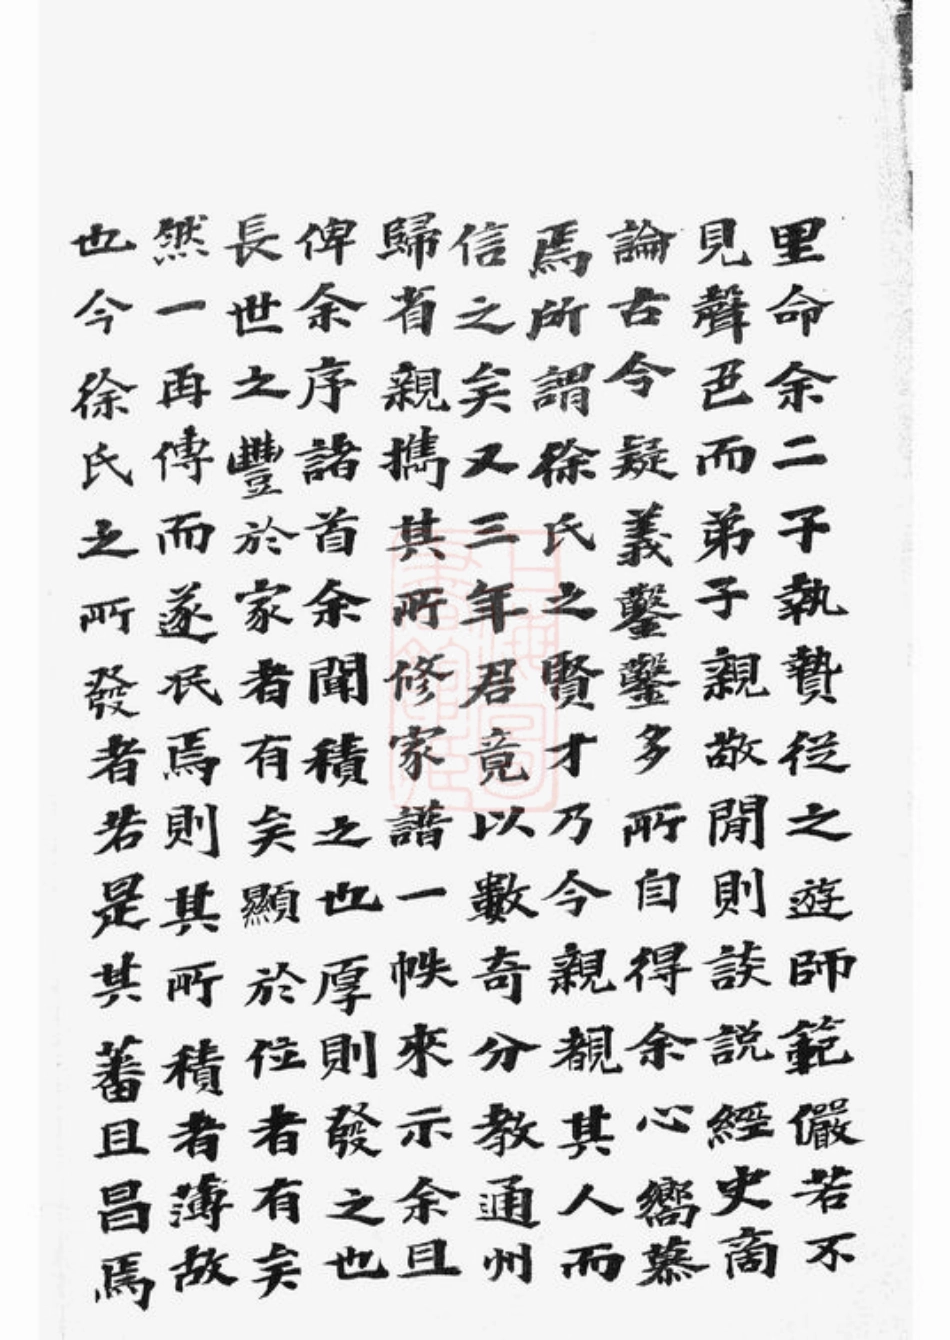 里命余二子執贄從之遊師範儼若不
見聲色而弟子親敬閒則談説經史啇
論古今疑義鑿鑿多所自得余心嚮慕
焉所謂徐氏之賢才乃今親覩其人而
信之矣又三年君竟以數奇分教通州
歸省親攜其所修家譜一帙來示余且
俾余序諸首余聞積之也厚則發之也
長世之豐於家者有矣顯於位者有矣
然一再傳而遂泯焉則其所積者薄故
也今徐氏之所發者若是其蕃且昌焉